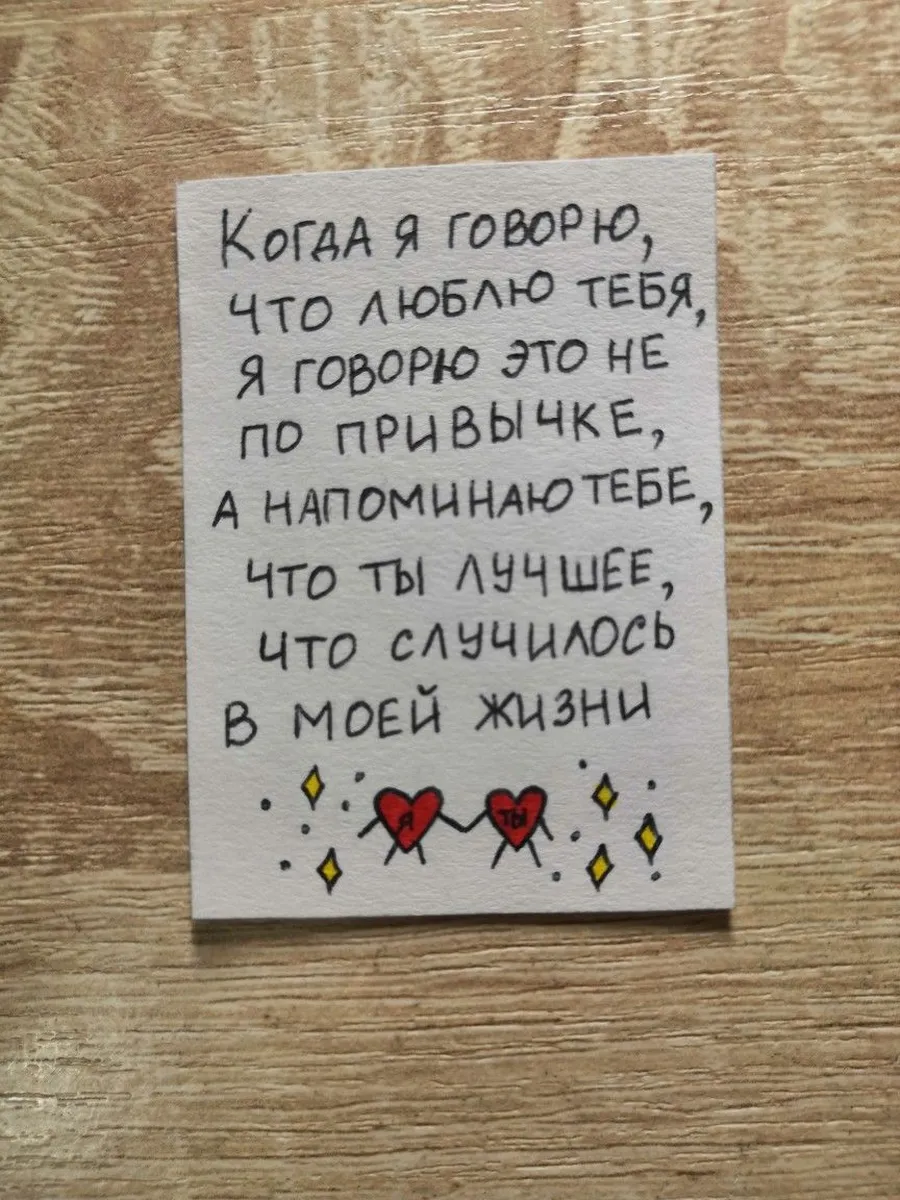 Когда я говорю,
что люблю тебя,
я говорю это не
по привычке,
а напоминаю тебе,
что ты лучшее,
что случилось
в моей жизни
я ты